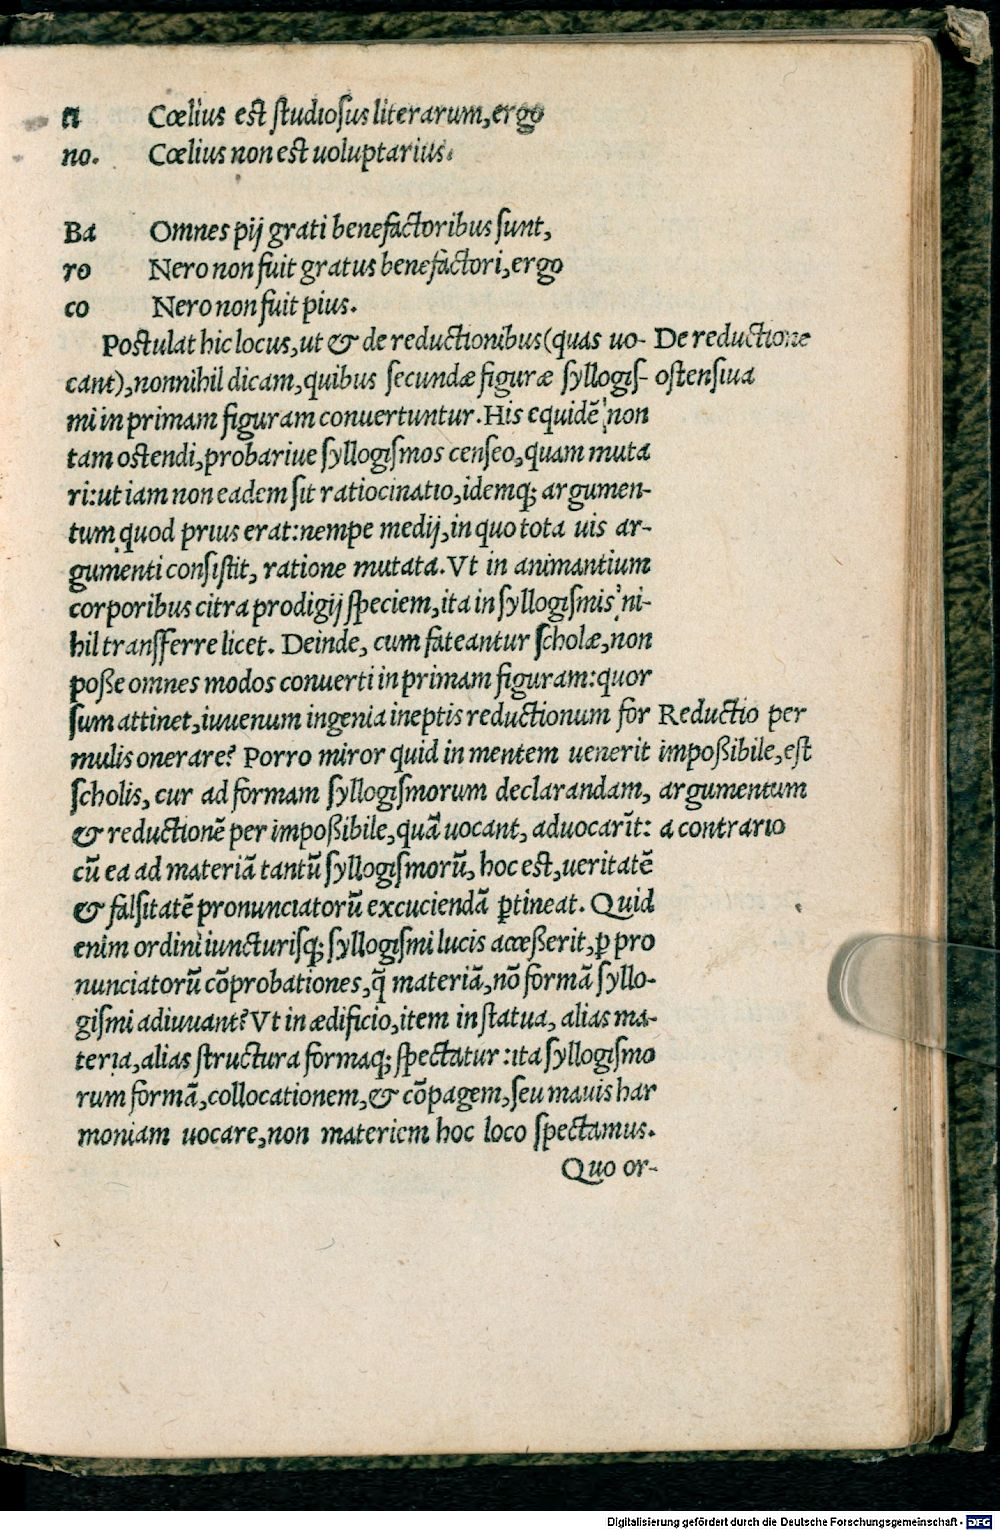 ti Cœlius est studiosus literarum, ergo
no. Cœlius non est uoluptarius.
Ba Omnes pij grati benefactoribus sunt,
ro Nero non fuit gratus benefactori, ergo
co Nero non fuit pius.
Postulat hic locus, ut & de reductionibus (quas uo-
cant), nonnihil dicam, quibus secundæ figuræ syllogis-
mi in primam figuram conuertuntur. His equidē non
tam ostendi, probariue syllogismos censeo, quam muta
ri: ut iam non eadem sit ratiocinatio, idemq; argumen-
tum quod prius erat: nempe medij, in quo tota uis ar-
gumenti consistit, ratione mutata. Vt in animantium
corporibus citra prodigij speciem, ita in syllogismis ni-
hil transferre licet. Deinde, cum fateantur scholæ, non
poße omnes modos conuerti in primam figuram: quor
sum attinet, iuuenum ingenia ineptis reductionum for
mulis onerare? Porro miror quid in mentem uenerit
scholis, cur ad formam syllogismorum declarandam,
& reductionē per impoßibile, quā uocant, aduocarīt:
cū ea ad materiā tantū syllogismorū, hoc est, ueritatē
& falsitatē pronunciatorū excuciendā ꝑtineat. Quid
enim ordini iuncturisq; syllogismi lucis acceßerit, ꝑ pro
nunciatorū cōprobationes, q̄ materiā, nō formā syllo-
gismi adiuuant? Vt in ædificio, item in statua, alias ma-
teria, alias structura formaq; spectatur: ita syllogismo
rum formā, collocationem, & cōpagem, seu mauis har
moniam uocare, non materiem hoc loco spectamus.
Quo or-
De reductione
ostensiua
Reductio per
impoßibile, est
argumentum
a contrario
Digitalisierung gefördert durch die Deutsche Forschungsgemeinschaft - DFG